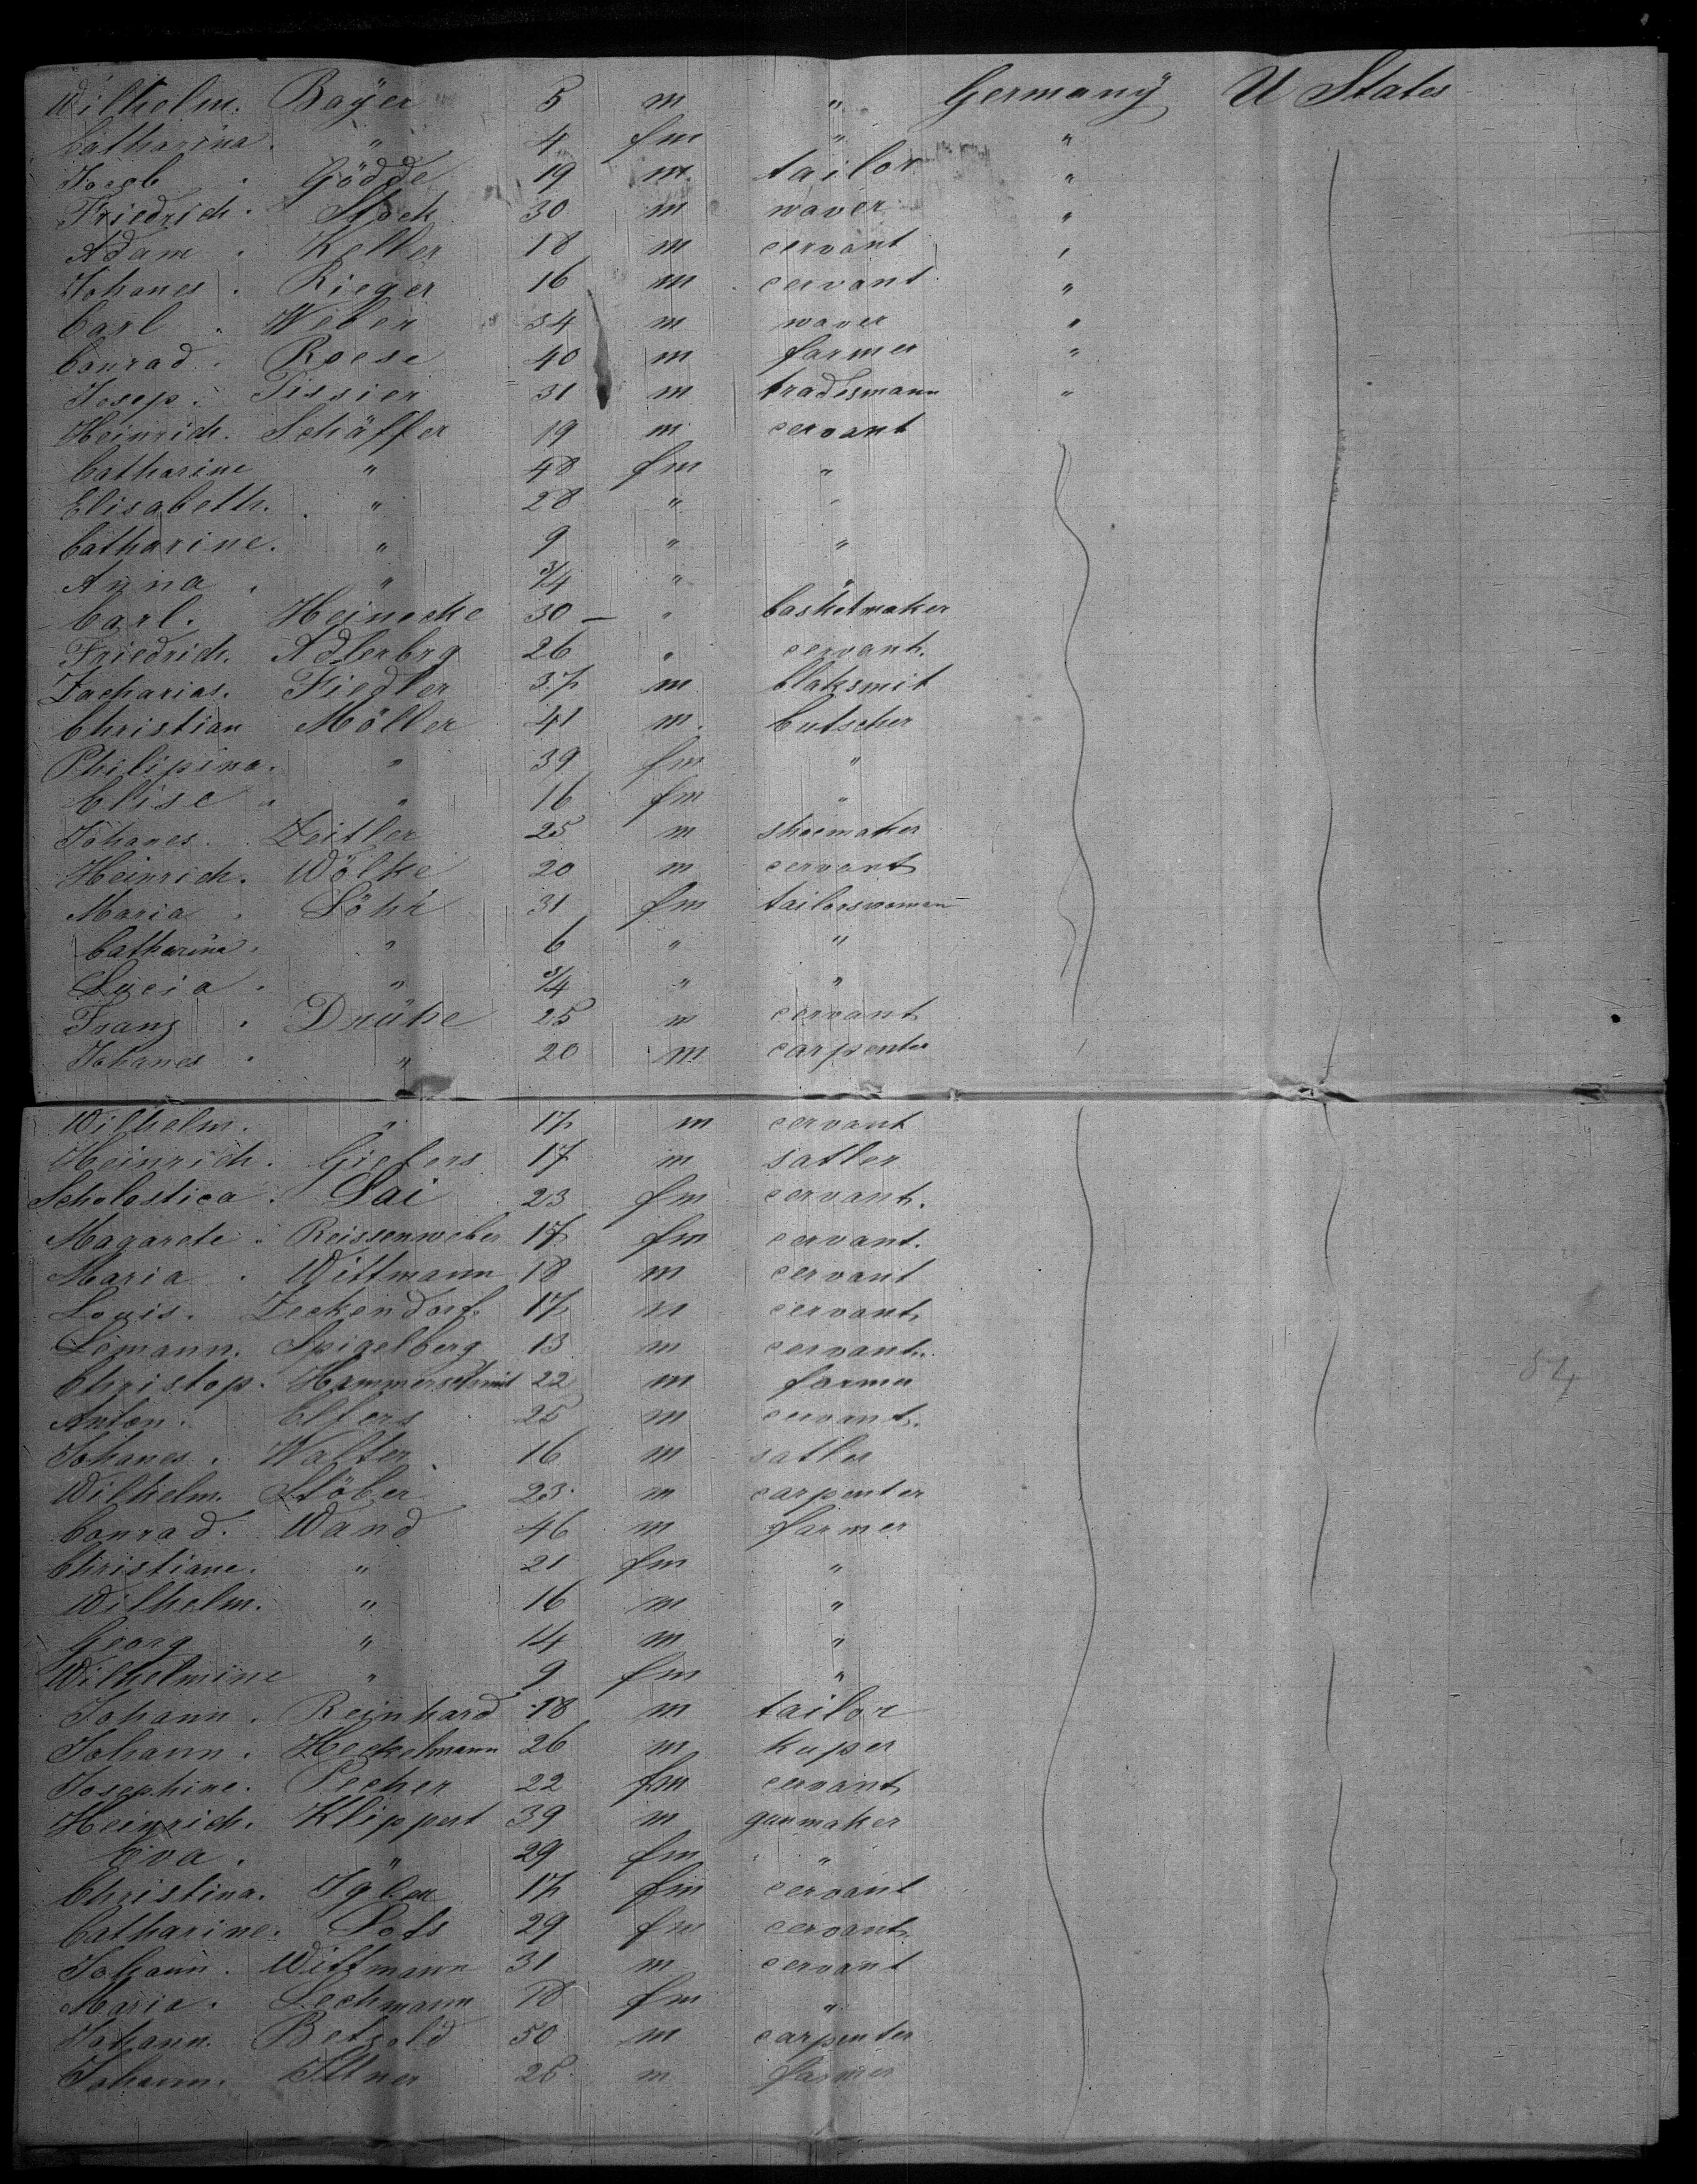 Wilhelm. Bayer 5 m " Germany U States
Catharina. " 4 fm " "
Jacob . Gödde 19 m tailor "
Friedrich. Stock 30 m waver "
Adam . Keller 18 m cervant "
Johanes . Rieger 16 m cervant "
Carl . Weber 34 m waver "
Conrad . Roese 40 m farmer "
Josep. Tissier 31 m tradesmann "
Heinrich. Schäffer 19 m cervant
Catharine " 48 fm "
Elisabeth. " 28 " "
Catharine. " 9 " "
Anna . " 3/4 " "
Carl. Heinecke 30 — " basketmaker
Friedrich. Adlerbrg 26 " cervant.
Zacharias. Fiedler 37 m blaksmit
Christian Möller 41 m. butscher
Philipina. " 39 fm "
Elise " " 16 fm "
Johanes. Zeitler 25 m shoemaker
Heinrich. Wölke 20 m cervant
Maria . Löhr 31 fm tailorswoman
Catharina. " 6 " "
Lucia . " 3/4 " "
Franz . Drüke 25 m cervant
Johanes . " 20 m carpenter
Wilhelm. " 17 m cervant
Heinrich. Giefers 17 m satler
Scholostica. Lai 23 fm cervant.
Magarete. Reissenweber 17 fm cervant.
Maria . Wittmann 18 m cervant
Louis. Zeckendorf 17 m cervant
Lemann. Spigelberg 13 m cervant.
Christop. Hammerschmit 22 m farmer
Anton. Elfers 25 m cervant.
Johanes. Walter. 16 m satler
Wilhelm. Stöber 23 m carpenter
Conrad. Wand 46 m farmer
Christiane. " 21 fm "
Wilhelm. " 16 m "
Georg " 14 m "
Wilhelmine " 9 fm "
Johann . Reinhard 18 m tailor
Johann . Heckelmann 26 m kuper
Josephine. Pecher 22 fm cervant
Heinrich. Klippert 39 m gunmaker
Eva . " 29 fm "
Christina. Igler 17 fm cervant
Catharine. Lots 29 fm cervant
Johann. Wittmann 31 m cervant
Maria. Lechmann 18 fm "
Johann. Betzold 50 m carpenter
Johann. Iltner 25 m farmer